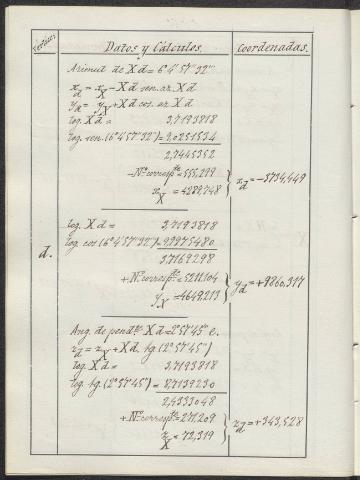 Vértices.
Datos y Cálculos.
Coordenadas.
d.
Azimut de Xd = 6°4'57"32'''
x_d = x_X - Xd sen. az. Xd
y_d = y_X + Xd cos. az. Xd
log. Xd = 3,7193818
log. sen. (6°4'57"32''') = 9,0251534
2,7445352
- Nº. corresp.te = 555,299
x_X = 4289,748
x_d = -5734,449
log. Xd = 3,7193818
log. cos (6°4'57"32''') = 9,9975480
3,7169298
+ Nº. corresp.te = 5211,104
y_X = 4649,213
y_d = +9860,317
Ang. de pend.te Xd = 2°57'45" e.
z_d = z_X + Xd. tg. (2°57'45")
log. Xd = 3,7193818
log. tg. (2°57'45") = 8,7139230
2,4333048
+ Nº. corresp.te = 271,209
z_X = 72,319
z_d = +343,528